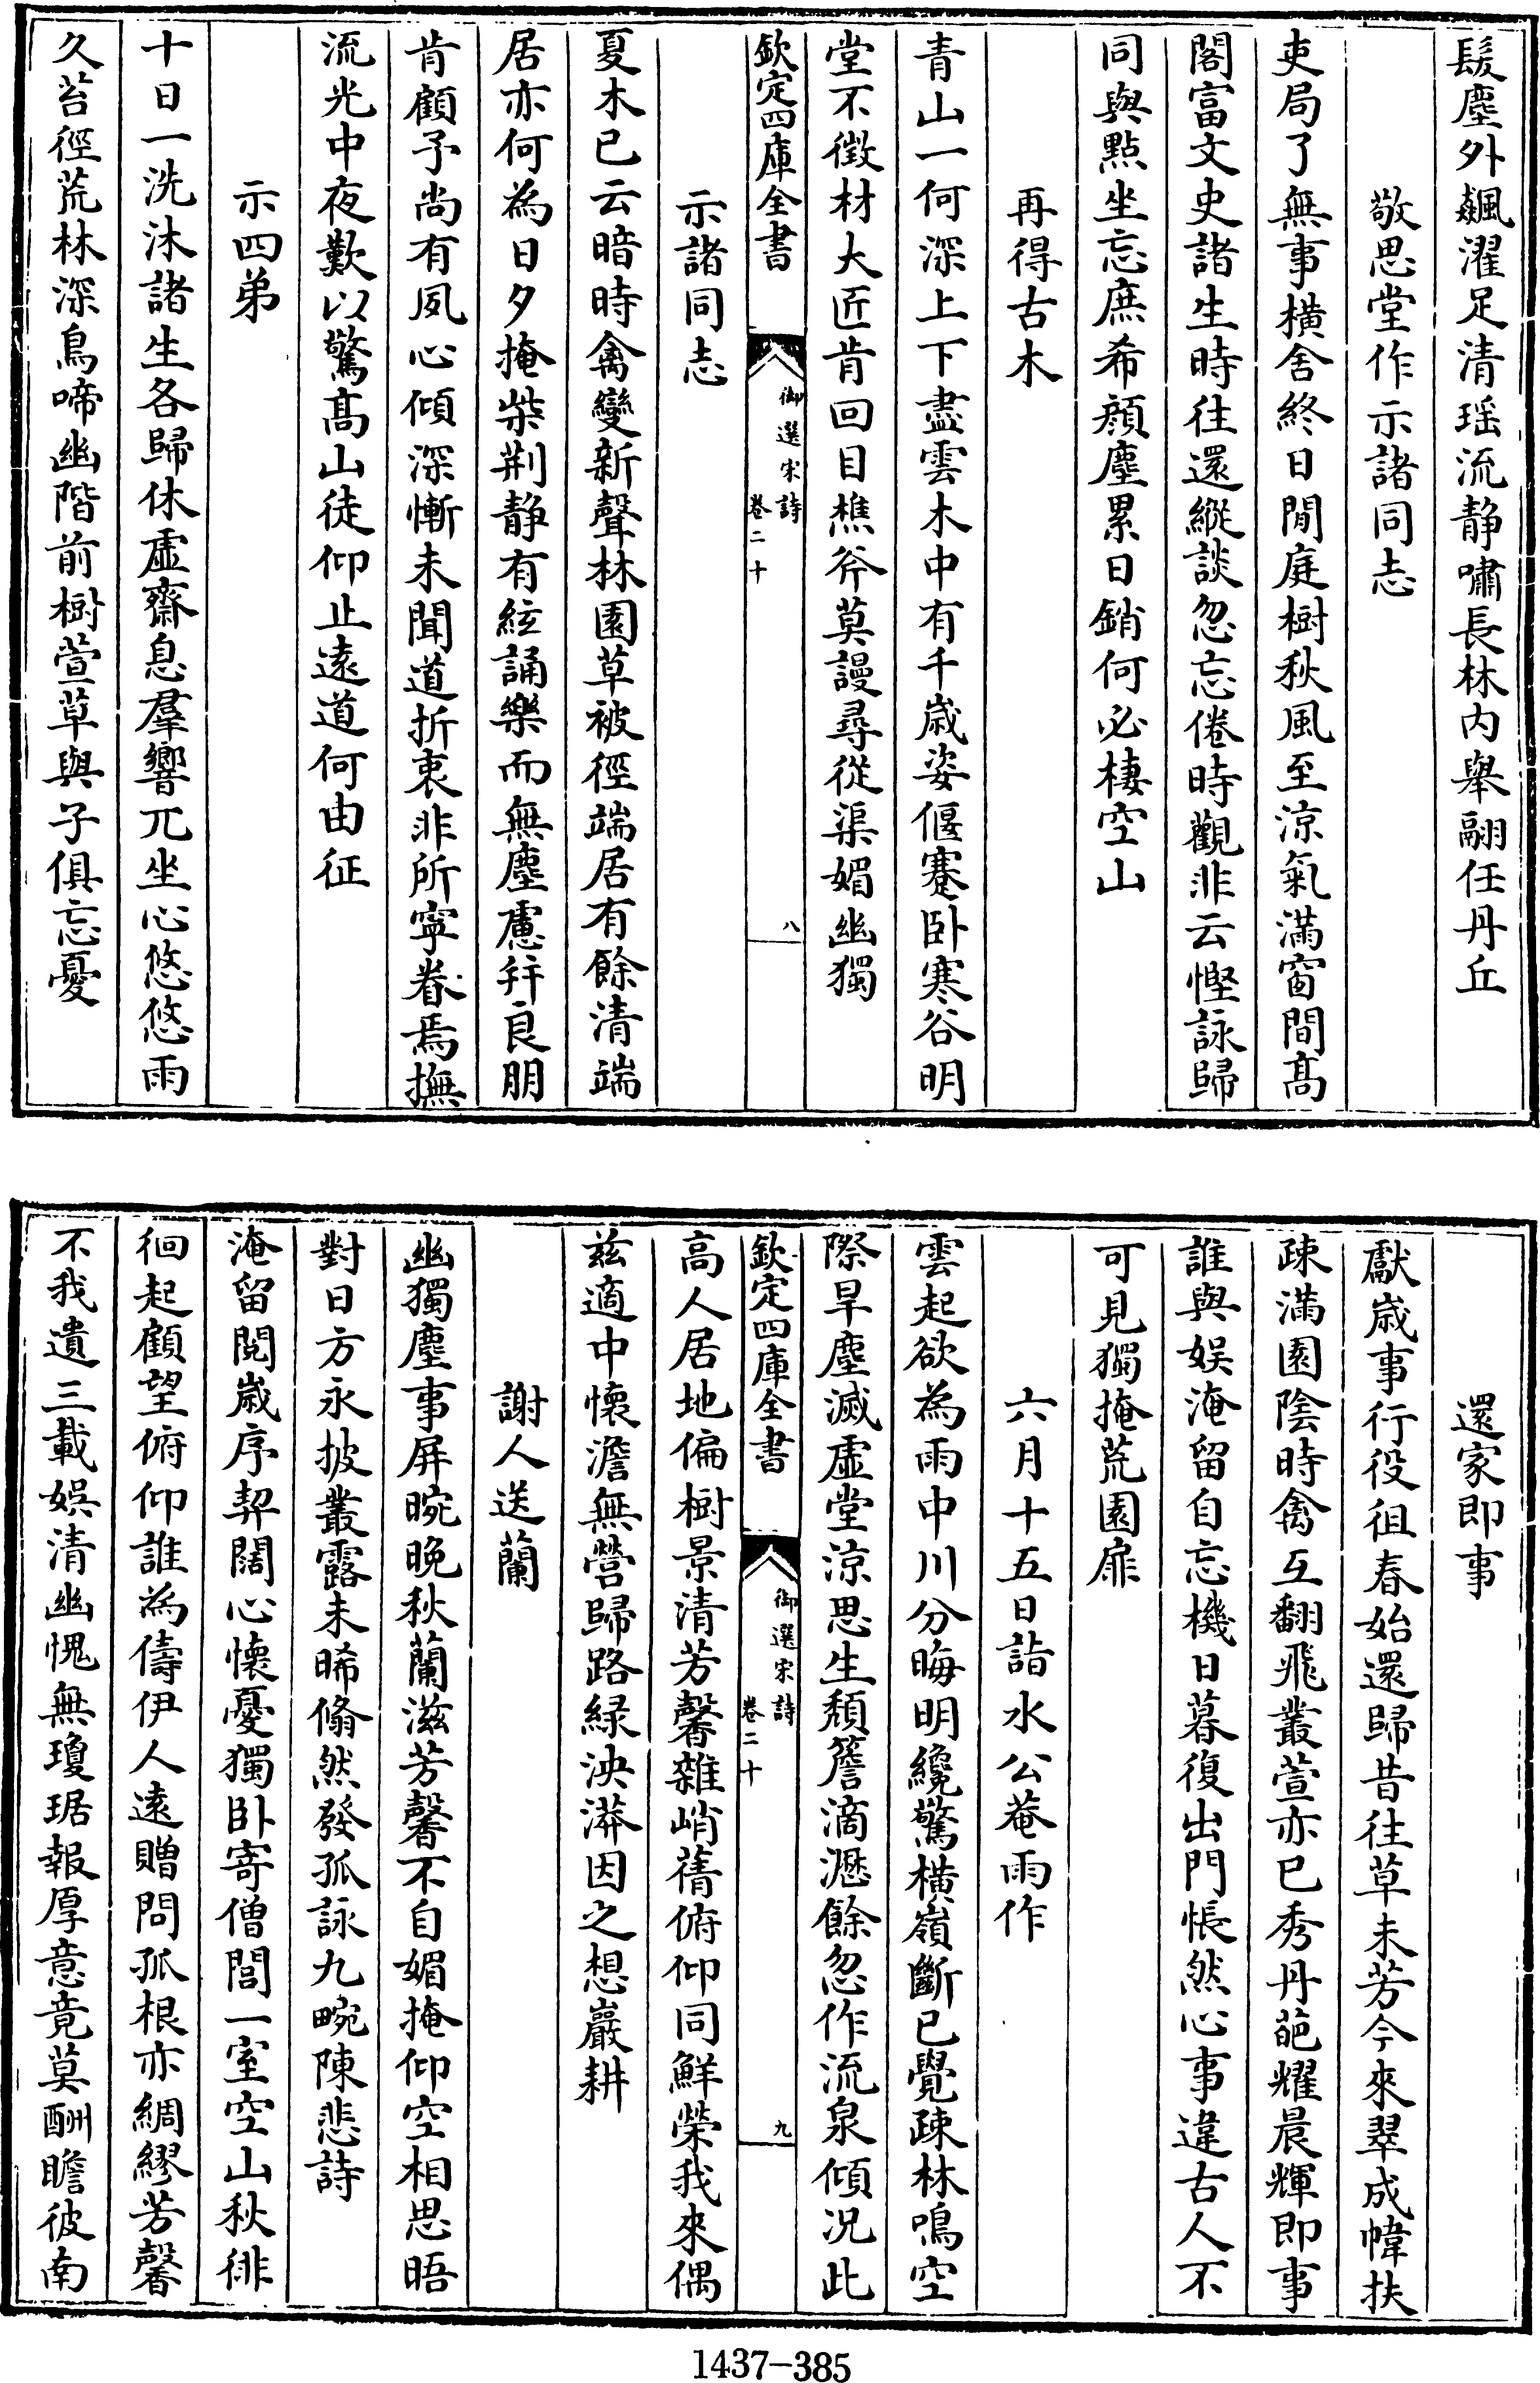 髮塵外飆濯足清瑶流静嘯長林内舉翮任丹丘
敬思堂作示諸同志
吏局了無事横舍終日閒庭樹秋風至涼氣滿窗間髙
閣富文史諸生時往還縱談忽忘倦時觀非云慳詠歸
同與㸃坐忘庶希顔塵累日銷何必棲空山
再得古木
青山一何深上下盡雲木中有千歳姿偃蹇卧寒谷明
堂不徴材大匠肯回目樵斧莫謾尋從渠媚幽獨
欽定四庫全書
御選宋詩
卷二十
八
示諸同志
夏木已云暗時禽變新聲林園草被徑端居有餘清端
居亦何為日夕掩柴荆静有絃誦樂而無塵慮并良朋
肯顧予尚有夙心傾深慚未聞道折衷非所寧眷焉撫
流光中夜歎以驚髙山徒仰止遠道何由征
示四弟
十日一洗沐諸生各歸休虚齋息羣響兀坐心悠悠雨
久苔徑荒林深鳥啼幽階前樹萱草與子俱忘憂
還家即事
獻歳事行役徂春始還歸昔往草未芳今來翠成幃扶
疎滿園陰時禽互翻飛叢萱亦已秀丹葩耀晨輝即事
誰與娱淹留自忘機日暮復出門悵然心事違古人不
可見獨掩荒園扉
六月十五日詣水公菴雨作
雲起欲為雨中川分晦明纔驚横嶺斷已覺疎林鳴空
際旱塵滅虚堂涼思生頽簷滴瀝餘忽作流泉傾况此
欽定四庫全書
御選宋詩
卷二十
九
高人居地偏樹景清芳馨雜峭蒨俯仰同鮮榮我來偶
兹適中懷澹無營歸路緑泱漭因之想巖耕
謝人送蘭
幽獨塵事屏晼晚秋蘭滋芳馨不自媚掩仰空相思晤
對日方永披叢露未晞翛然發孤詠九畹陳悲詩
淹留閲歳序契闊心懷憂獨卧寄僧閭一室空山秋徘
徊起顧望俯仰誰為儔伊人遠贈問孤根亦綢繆芳馨
不我遺三載娱清幽愧無瓊琚報厚意竟莫酬瞻彼南
1437-385